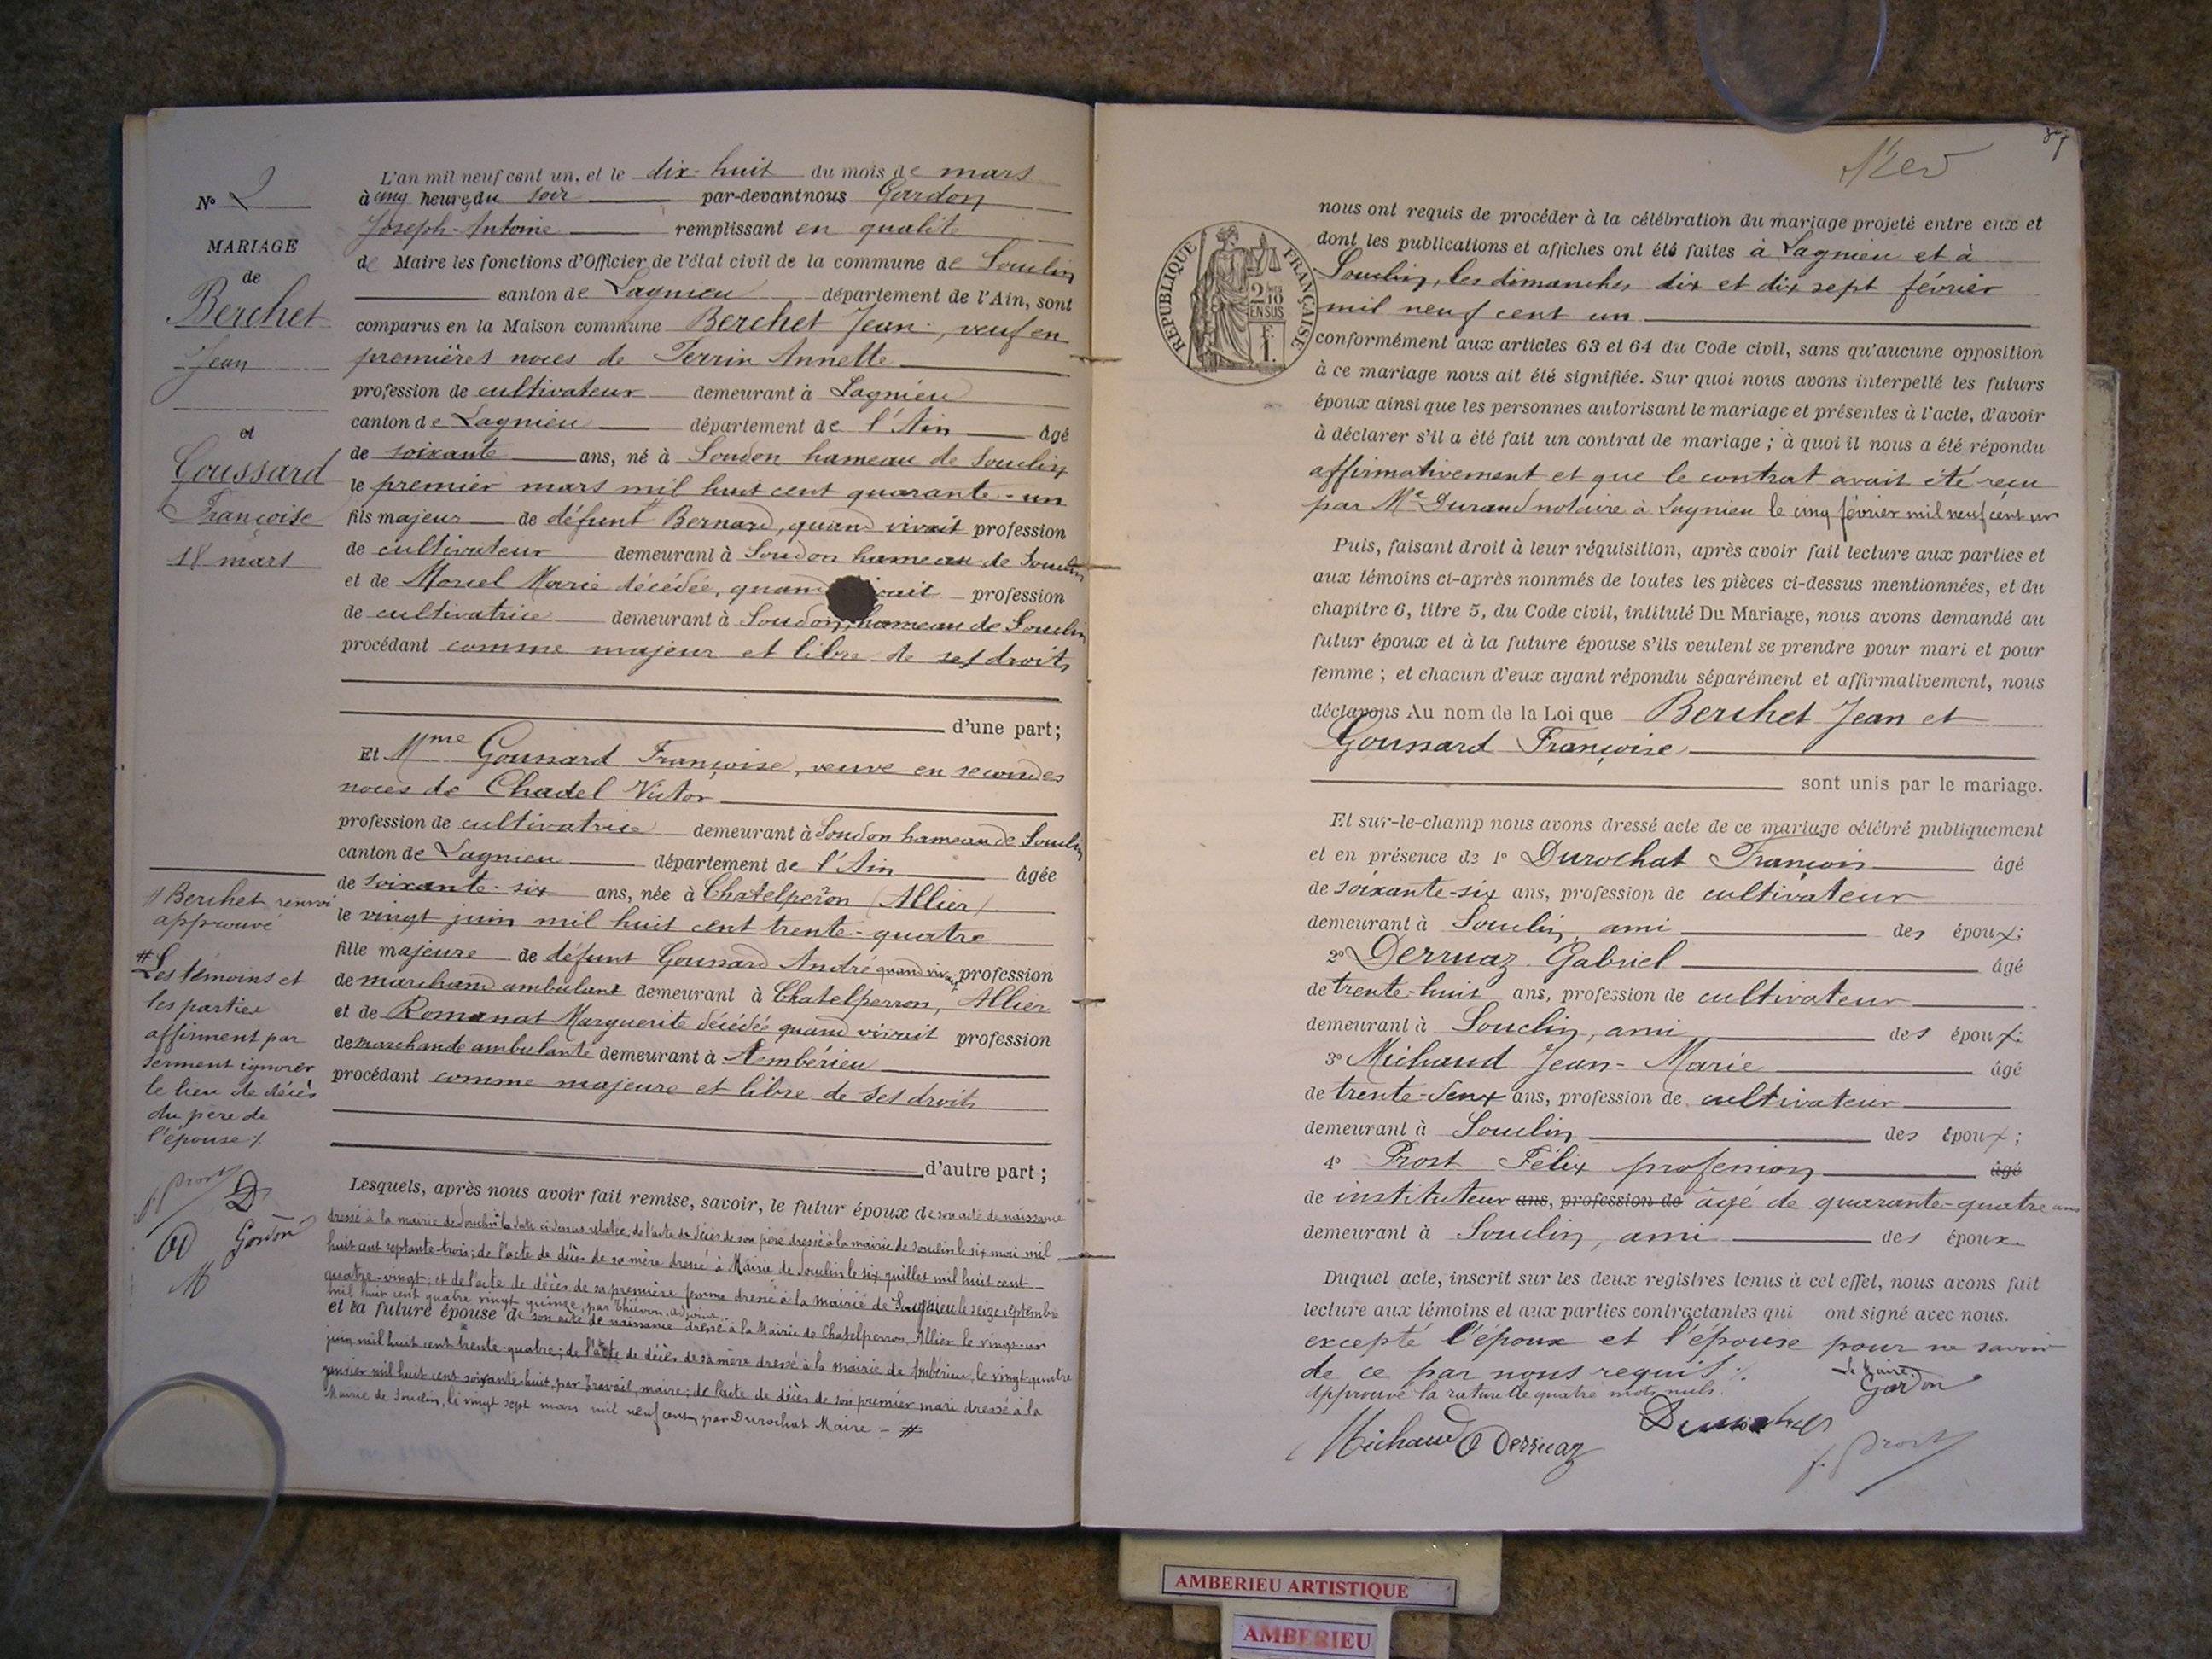 N° 2
MARIAGE
de
Berchet
Jean
et
Goussard
Françoise
18 mars
# Berchet renvoi
approuvé
# Les témoins et
les parties
affirment par
serment ignorer
le lieu de décès
du père de
l'épouse ./.
f. Prost
D
Gardon
M
L'an mil neuf cent un, et le dix-huit du mois de mars
à cinq heures du soir par-devant nous Gardon
Joseph-Antoine remplissant en qualité
de Maire les fonctions d'Officier de l'état civil de la commune de Souclin
canton de Lagnieu département de l'Ain, sont
comparus en la Maison commune Berchet Jean, veuf en
premières noces de Perrin Annette
profession de cultivateur demeurant à Lagnieu
canton de Lagnieu département de l'Ain âgé
de soixante ans, né à Soudon hameau de Souclin
le premier mars mil huit cent quarante-un
fils majeur de défunt Bernard, quand vivait profession
de cultivateur demeurant à Soudon hameau de Souclin
et de Morcel Marie décédée, quand vivait profession
de cultivatrice demeurant à Soudon, hameau de Souclin
procédant comme majeur et libre de ses droits
d'une part;
Et Mme Goussard Françoise, veuve en secondes
noces de Chadel Victor
profession de cultivatrice demeurant à Soudon hameau de Souclin
canton de Lagnieu département de l'Ain âgée
de soixante-six ans, née à Chatelperron (Allier)
le vingt juin mil huit cent trente-quatre
fille majeure de défunt Goussard André quand vivait profession
de marchand ambulant demeurant à Chatelperron, Allier
et de Romanat Marguerite décédée quand vivait profession
de marchande ambulante demeurant à Ambérieu
procédant comme majeure et libre de ses droits
d'autre part;
Lesquels, après nous avoir fait remise, savoir, le futur époux de son acte de naissance
dressé à la mairie de Souclin à la date ci-dessus relatée, de l'acte de décès de son père dressé à la mairie de Souclin le six mai mil
huit cent septante-trois; de l'acte de décès de sa mère dressé à Mairie de Souclin le six juillet mil huit cent
quatre-vingt; et de l'acte de décès de sa première femme dressé à la mairie de Lagnieu le seize septembre
mil huit cent quatre vingt quinze, par adjoint
et la future épouse de son acte de naissance dressé à la Mairie de Chatelperron, Allier le vingt-un
juin mil huit cent trente-quatre; de l'acte de décès de sa mère dressé à la mairie de Ambérieu, le vingt-quatre
janvier mil huit cent soixante-huit, par Travail, maire; de l'acte de décès de son premier mari dressé à la
Mairie de Souclin, le vingt sept mars mil neuf cent par Durochat Maire - #
nous ont requis de procéder à la célébration du mariage projeté entre eux et
dont les publications et affiches ont été faites à Lagnieu et à
Souclin, les dimanches dix et dix sept février
mil neuf cent un
RÉPUBLIQUE FRANÇAISE
2/10 EN SUS
1 F.
conformément aux articles 63 et 64 du Code civil, sans qu'aucune opposition
à ce mariage nous ait été signifiée. Sur quoi nous avons interpellé les futurs
époux ainsi que les personnes autorisant le mariage et présentes à l'acte, d'avoir
à déclarer s'il a été fait un contrat de mariage; à quoi il nous a été répondu
affirmativement et que le contrat avait été reçu
par Me Durand notaire à Lagnieu le cinq février mil neuf cent un
Puis, faisant droit à leur réquisition, après avoir fait lecture aux parties et
aux témoins ci-après nommés de toutes les pièces ci-dessus mentionnées, et du
chapitre 6, titre 5, du Code civil, intitulé Du Mariage, nous avons demandé au
futur époux et à la future épouse s'ils veulent se prendre pour mari et pour
femme; et chacun d'eux ayant répondu séparément et affirmativement, nous
déclarons Au nom de la Loi que Berchet Jean et
Goussard Françoise
sont unis par le mariage.
Et sur-le-champ nous avons dressé acte de ce mariage célébré publiquement
et en présence de 1° Durochat François âgé
de soixante-six ans, profession de cultivateur
demeurant à Souclin, ami des époux;
2° Derruaz Gabriel âgé
de trente-huit ans, profession de cultivateur
demeurant à Souclin, ami des époux;
3° Michaud Jean-Marie âgé
de trente-deux ans, profession de cultivateur
demeurant à Souclin des époux;
4° Prost Félix profession âgé
de instituteur ans, profession de âgé de quarante-quatre ans
demeurant à Souclin, ami des époux.
Duquel acte, inscrit sur les deux registres tenus à cet effet, nous avons fait
lecture aux témoins et aux parties contractantes qui ont signé avec nous.
excepté l'époux et l'épouse pour ne savoir
de ce par nous requis ./.
Approuvé la rature de quatre mots nuls.
Le Maire,
Gardon
Michaud Derruaz
Durochat
f. Prost
AMBERIEU ARTISTIQUE
AMBERIEU